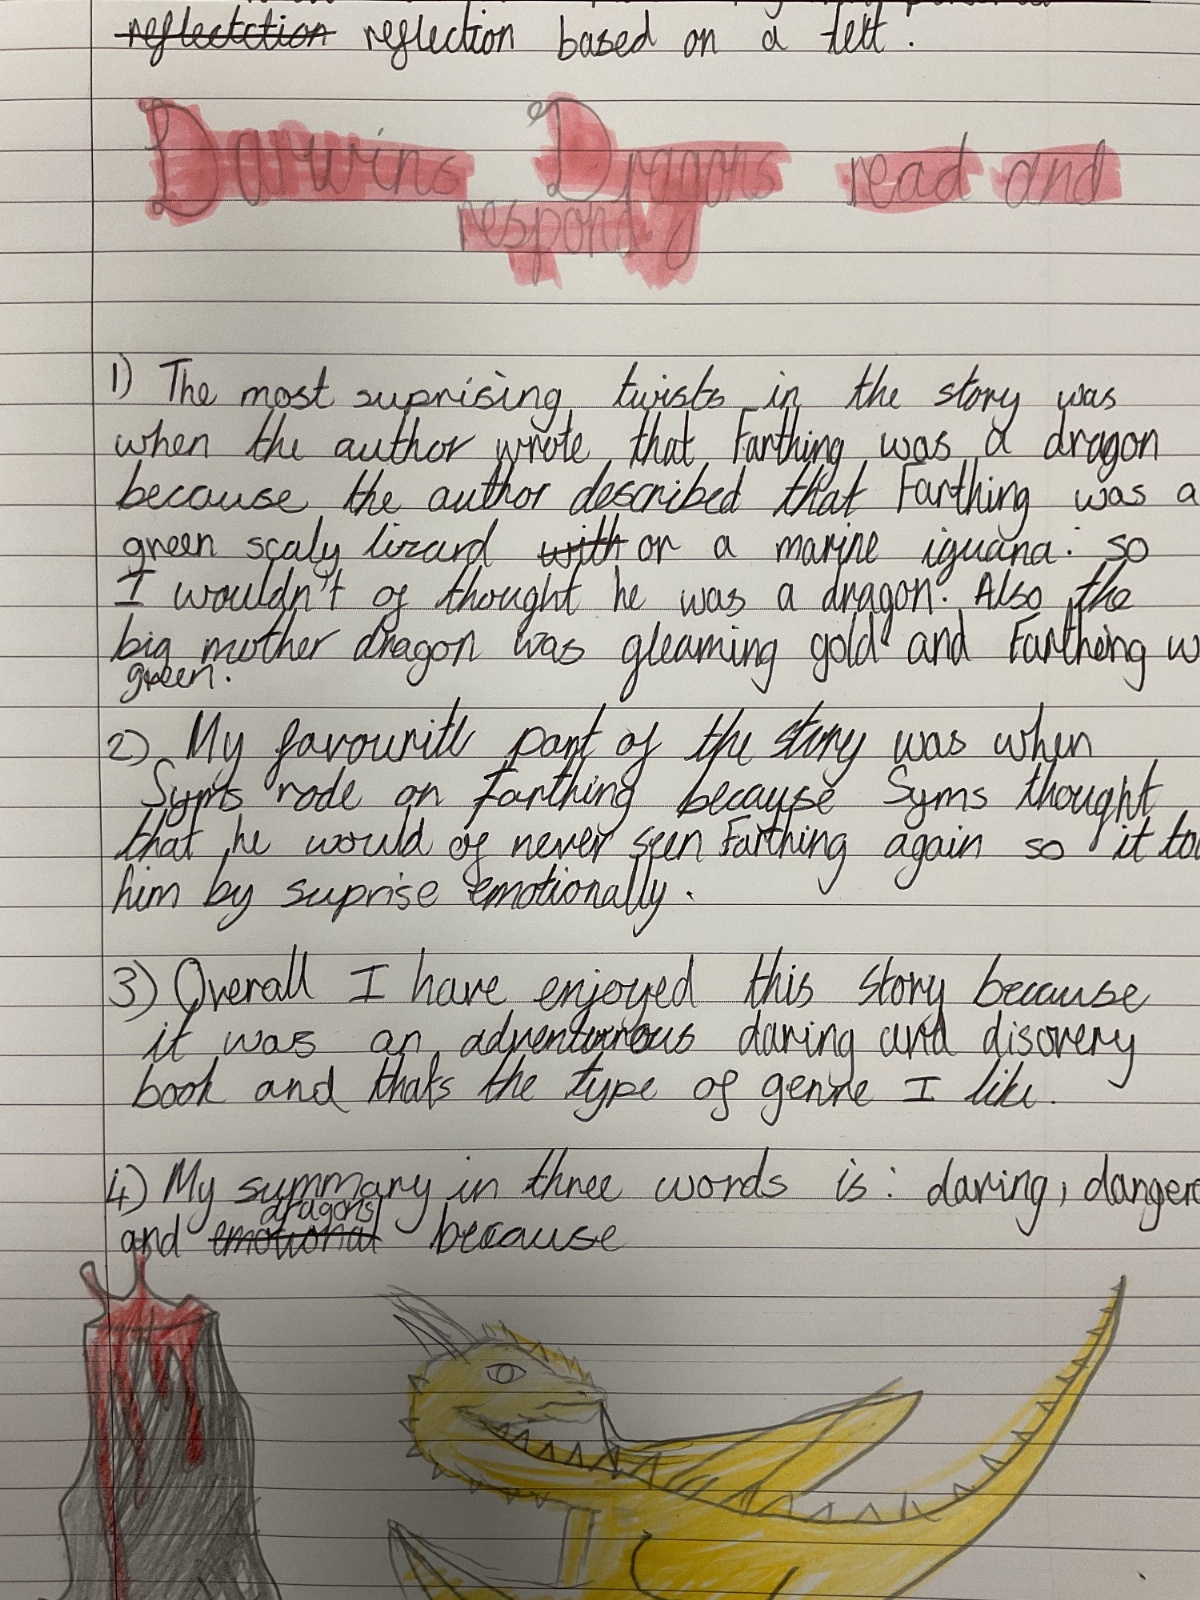 reflectction reflection based on a text.
Darwins Dragons read and
respond
1) The most suprising twists in the story was
when the author wrote that Farthing was a dragon
because the author described that Farthing was a
green scaly lizard with or a marine iguana. so
I wouldn't of thought he was a dragon. Also the
big mother dragon was gleaming gold and Farthing w
green.
2) My favourite part of the story was when
Syms rode on Farthing because Syms thought
that he would of never seen Farthing again so it
him by suprise emotionally.
3) Overall I have enjoyed this story because
it was an adventurous daring and discovery
book and thats the type of genre I like.
4) My summary in three words is: daring, danger
dragons
and emotional because